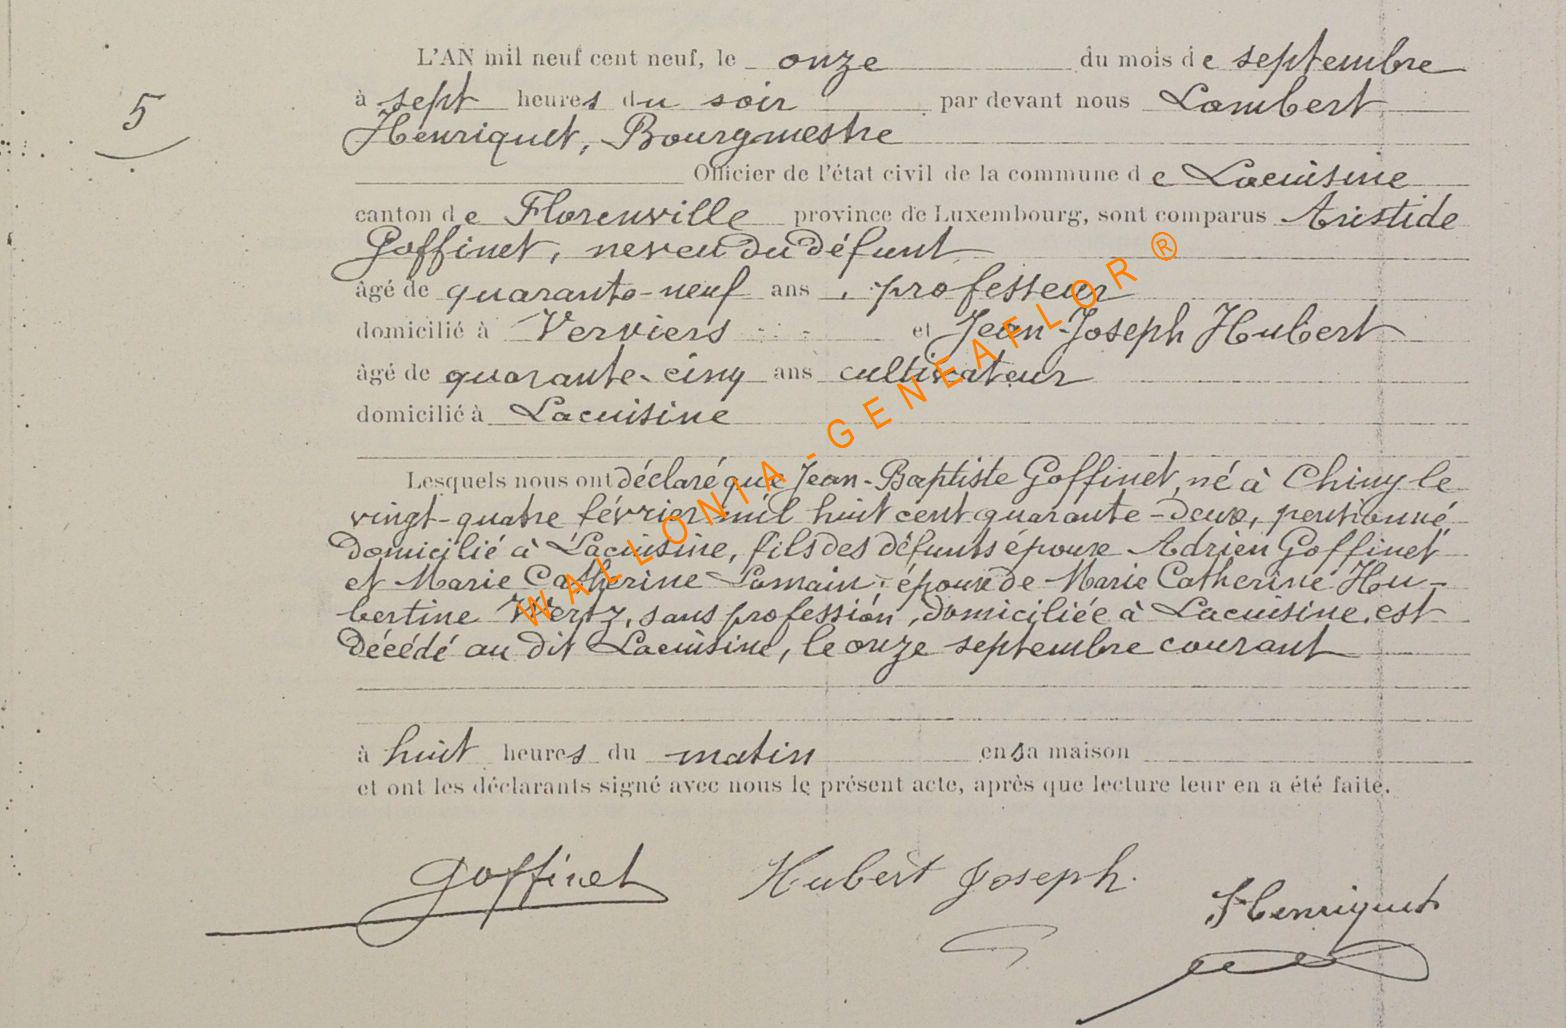 L'AN mil neuf cent neuf, le onze du mois de septembre
5
à sept heures du soir par devant nous Lambert
Henriquet, Bourgmestre
Officier de l'état civil de la commune de Lacuisine
canton de Florenville province de Luxembourg, sont comparus Aristide
Goffinet, neveu du défunt
âgé de quarante-neuf ans, professeur
domicilié à Verviers et Jean-Joseph Hubert
âgé de quarante-cinq ans cultivateur
domicilié à Lacuisine
Lesquels nous ont déclaré que Jean-Baptiste Goffinet, né à Chiny le
vingt-quatre février mil huit cent quarante-deux, pensionné
domicilié à Lacuisine, fils des défunts époux Adrien Goffinet
et Marie Catherine Lomain, époux de Marie Catherine Hu-
bertine Wertz, sans profession, domiciliée à Lacuisine, est
décédé au dit Lacuisine, le onze septembre courant
à huit heures du matin en sa maison
et ont les déclarants signé avec nous le présent acte, après que lecture leur en a été faite.
Goffinet Hubert Joseph. Henriquet
WALLONIA-GENEAFLOR®